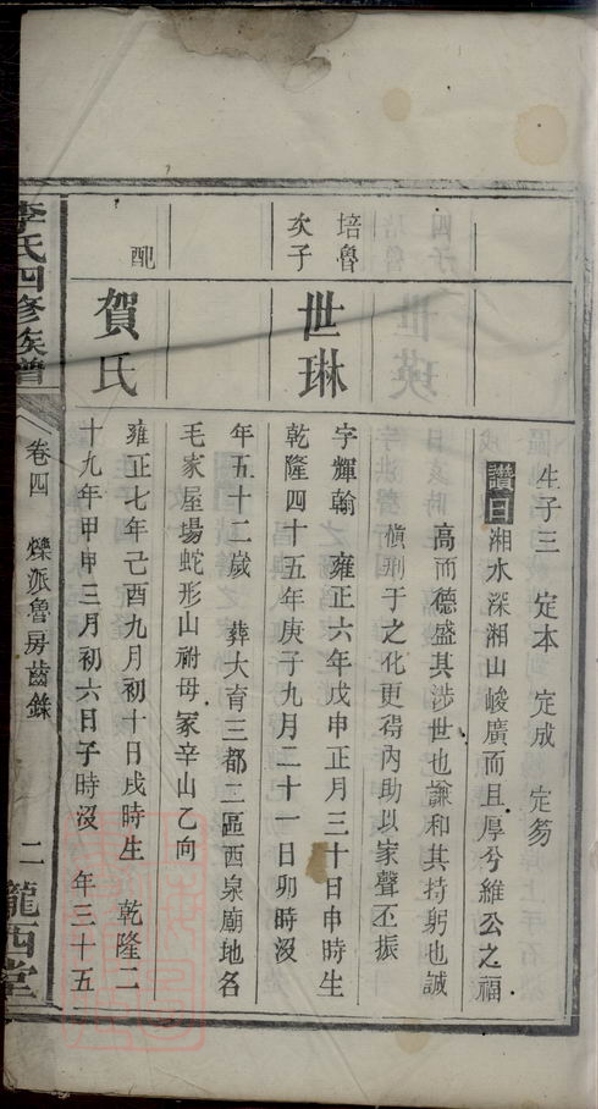 生子三 定本 定成 定芴
讚曰 湘水深湘山峻廣而且厚兮維公之福
高而德盛其涉世也謙和其持躬也誠
慎刑于之化更得內助以家聲丕振
培魯
次子
世琳
字輝翰 雍正六年戊申正月三十日申時生
乾隆四十五年庚子九月二十一日卯時沒
年五十二歲 葬大育三都二區西泉廟地名
毛家屋場蛇形山祔母冢辛山乙向
配
賀氏
雍正七年己酉九月初十日戌時生 乾隆二
十九年甲申三月初六日子時沒 年三十五
李氏四修族譜
卷四 爍派魯房齒錄
二
隴西堂